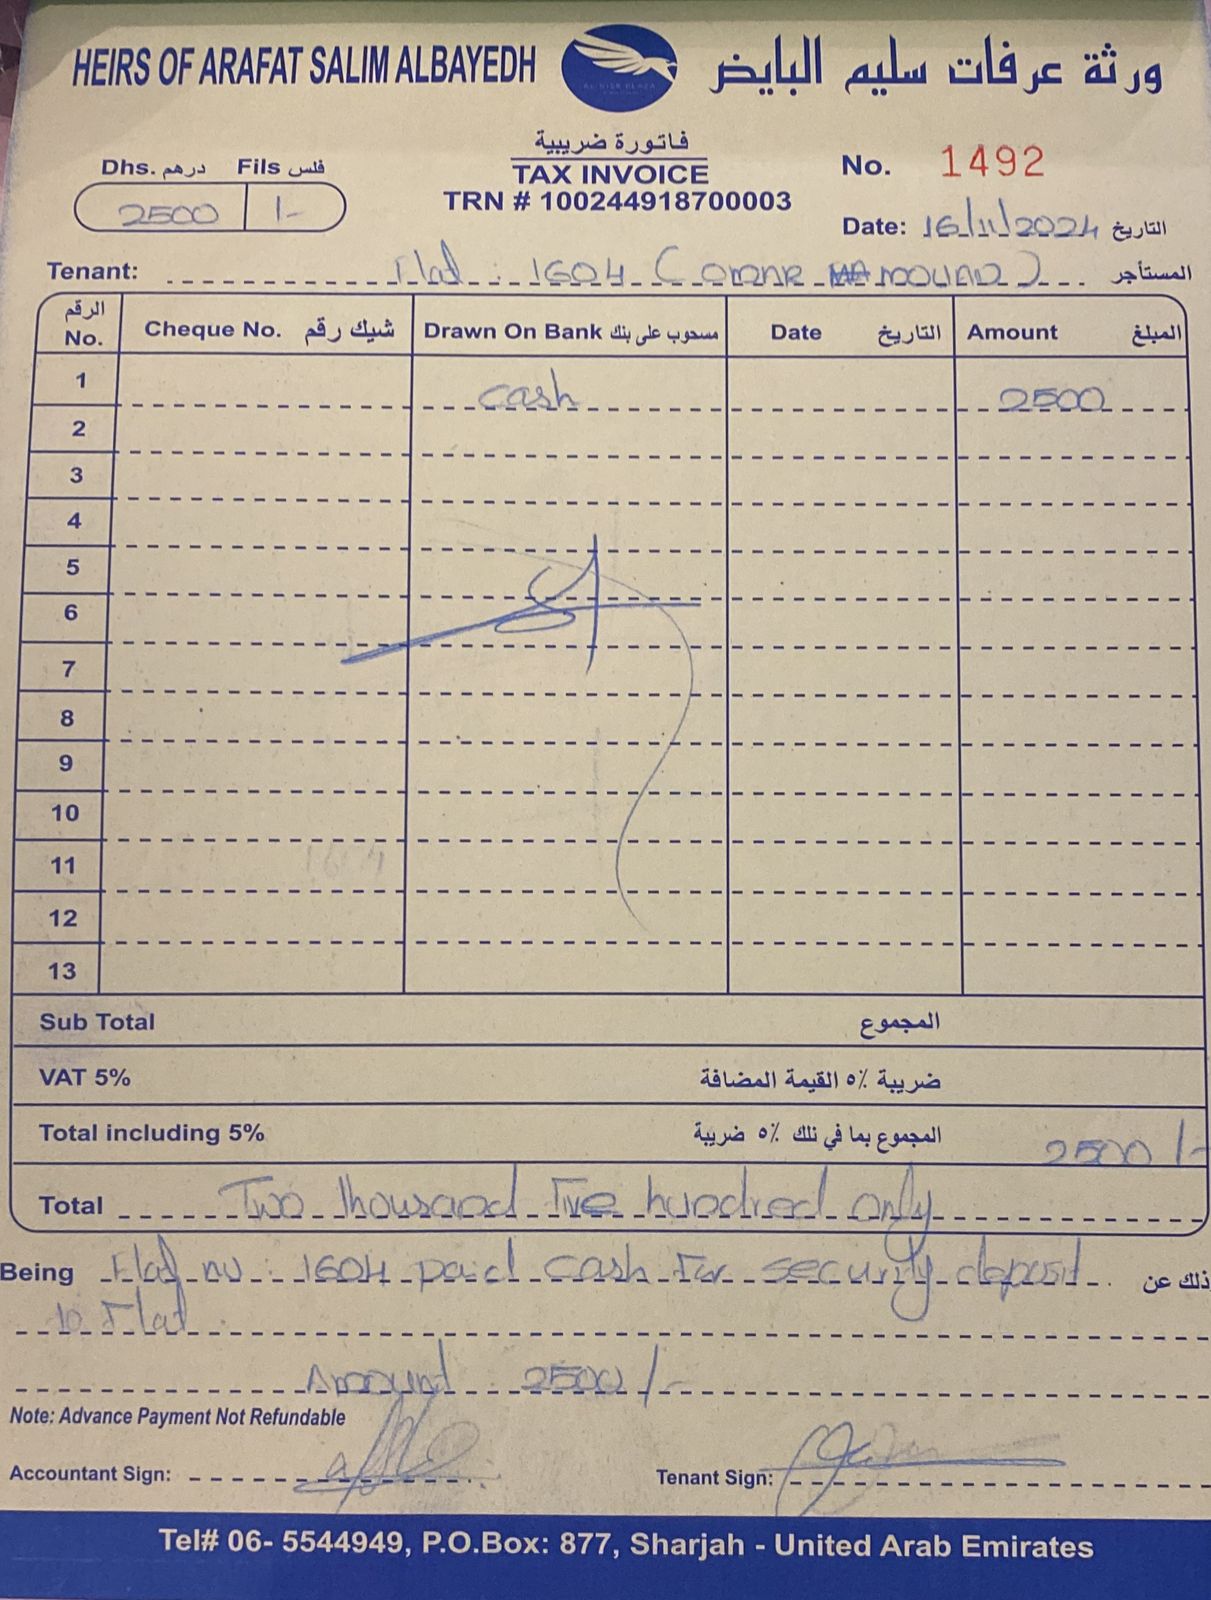 HEIRS OF ARAFAT SALIM ALBAYEDH
ورثة عرفات سليم البايض
فاتورة ضريبية
TAX INVOICE
TRN # 100244918700003
Dhs. درهم Fils فلس
2500 /-
No. 1492
Date: 16/11/2024 التاريخ
Tenant: Flat : 1604 (OMAR المستأجر
الرقم No. Cheque No. شيك رقم Drawn On Bank مسحوب على بنك Date التاريخ Amount المبلغ
1 cash 2500
2
3
4
5
6
7
8
9
10
11
12
13
Sub Total المجموع
VAT 5% ضريبة ٥٪ القيمة المضافة
Total including 5% المجموع بما في ذلك ٥٪ ضريبة 2500 /-
Total Two thousand Five hundred only
Being Flat no : 1604 paid cash For security deposit ذلك عن
to Flat
Amount 2500 /-
Note: Advance Payment Not Refundable
Accountant Sign:
Tenant Sign:
Tel# 06- 5544949, P.O.Box: 877, Sharjah - United Arab Emirates